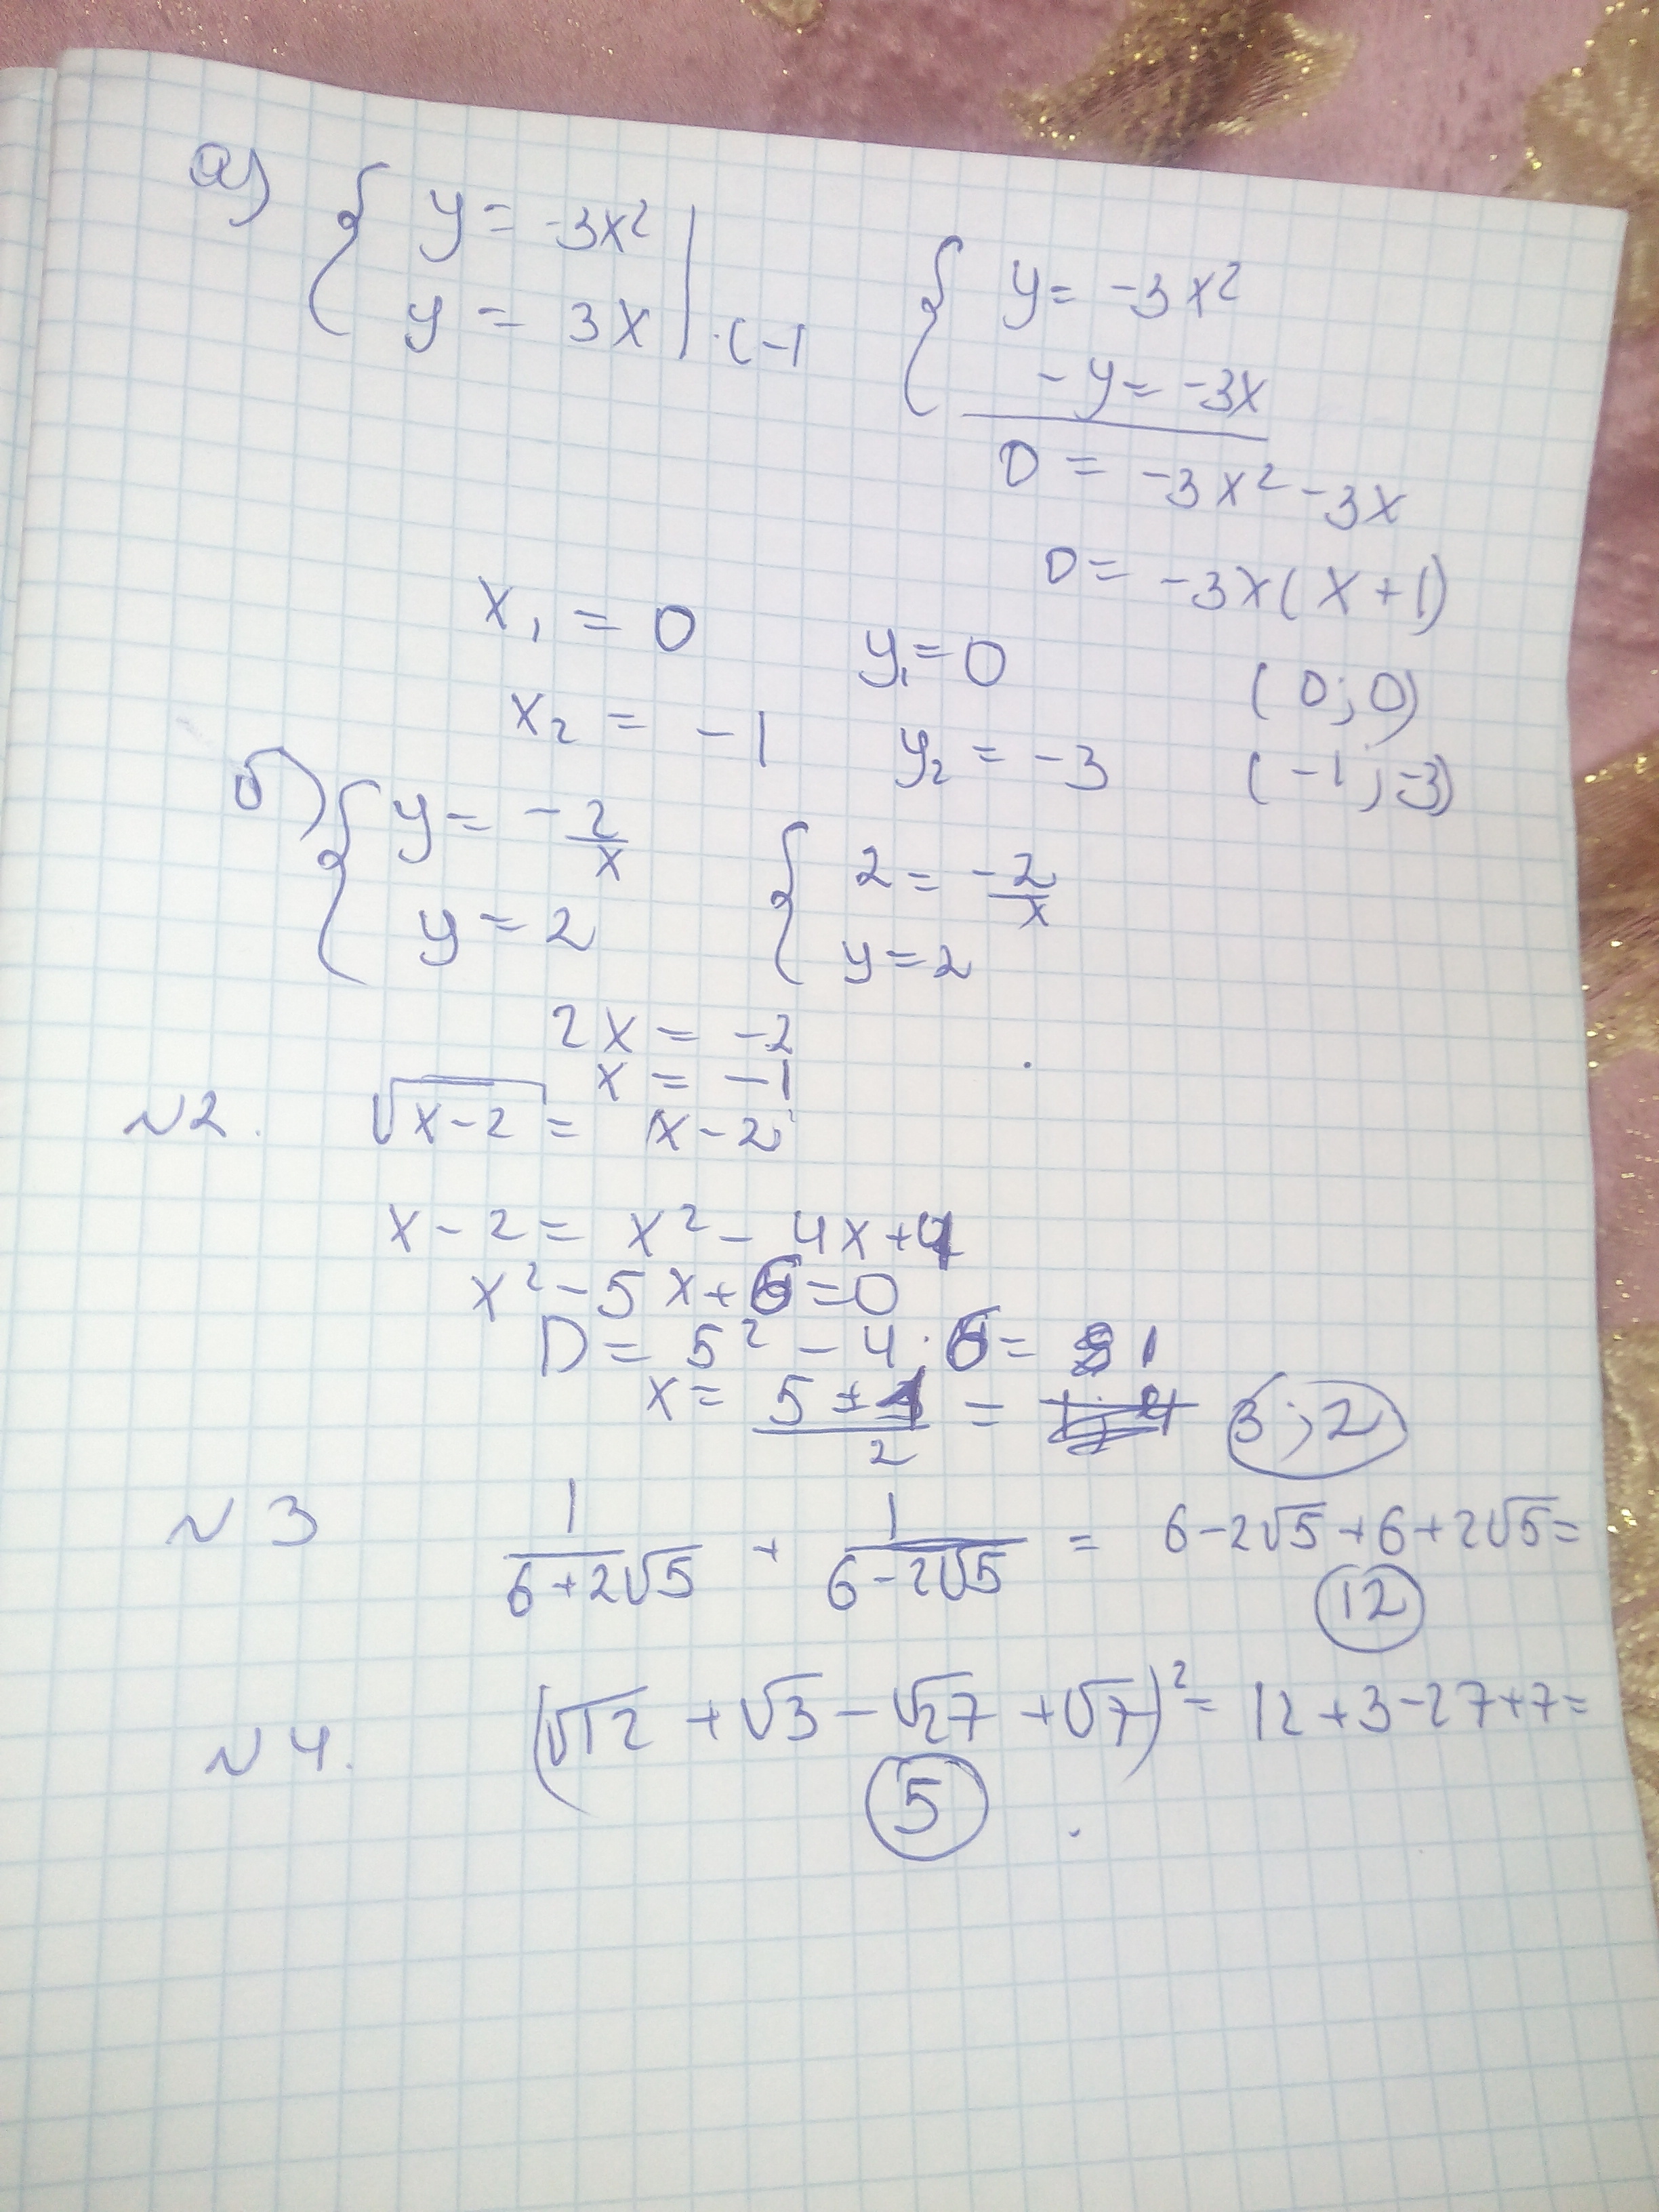 а) { y = -3x²
y = 3x | ·(-1
{ y = -3x²
-y = -3x
0 = -3x² - 3x
0 = -3x(x+1)
x₁ = 0 y₁ = 0 (0;0)
x₂ = -1 y₂ = -3 (-1;-3)
б) { y = -2/x
y = 2
{ 2 = -2/x
y = 2
2x = -2
x = -1
N2. √(x-2) = x-2
x - 2 = x² - 4x + 4
x² - 5x + 6 = 0
D = 5² - 4·6 = 1
x = (5±1)/2 = 3;2
N3 1/(6+2√5) + 1/(6-2√5) = 6-2√5+6+2√5 =
12
N4. (√12 + √3 - √27 + √7)² = 12+3-27+7=
5